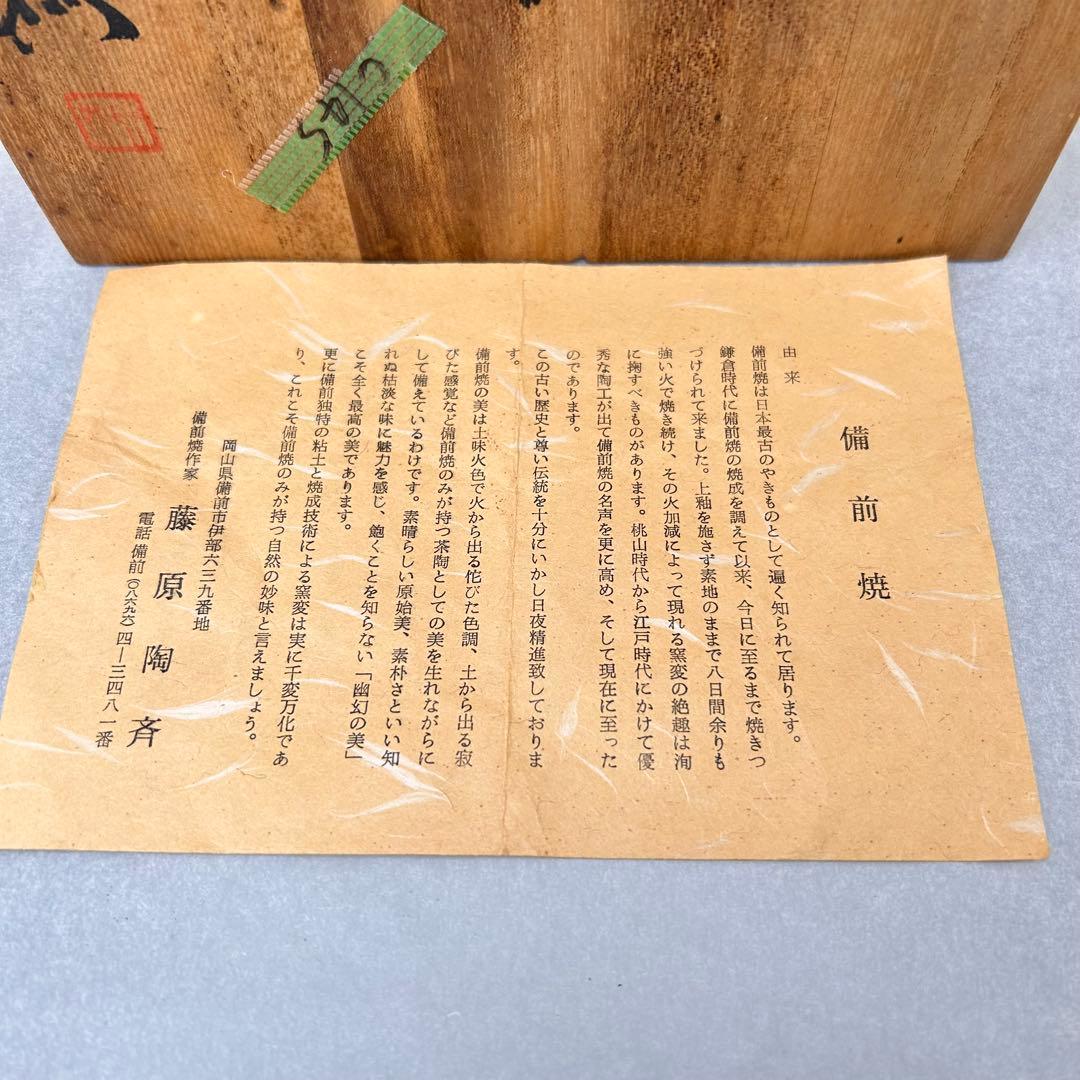 C145
備前焼
由来
備前焼は日本最古のやきものとして遍く知られて居ります。
鎌倉時代に備前焼の焼成を調えて以来、今日に至るまで焼きつ
づけられて来ました。上釉を施さず素地のままで八日間余りも
強い火で焼き続け、その火加減によって現れる窯変の絶趣は洵
に掬すべきものがあります。桃山時代から江戸時代にかけて優
秀な陶工が出て備前焼の名声を更に高め、そして現在に至った
のであります。
この古い歴史と尊い伝統を十分にいかし日夜精進致しておりま
す。
備前焼の美は土味火色で火から出る侘びた色調、土から出る寂
びた感覚など備前焼のみが持つ茶陶としての美を生れながらに
して備えているわけです。素晴らしい原始美、素朴さといい知
れぬ枯淡な味に魅力を感じ、飽くことを知らない「幽幻の美」
こそ全く最高の美であります。
更に備前独特の粘土と焼成技術による窯変は実に千変万化であ
り、これこそ備前焼のみが持つ自然の妙味と言えましょう。
岡山県備前市伊部六三九番地
備前焼作家 藤原陶斉
電話 備前(〇八六九六)四―三四八一番